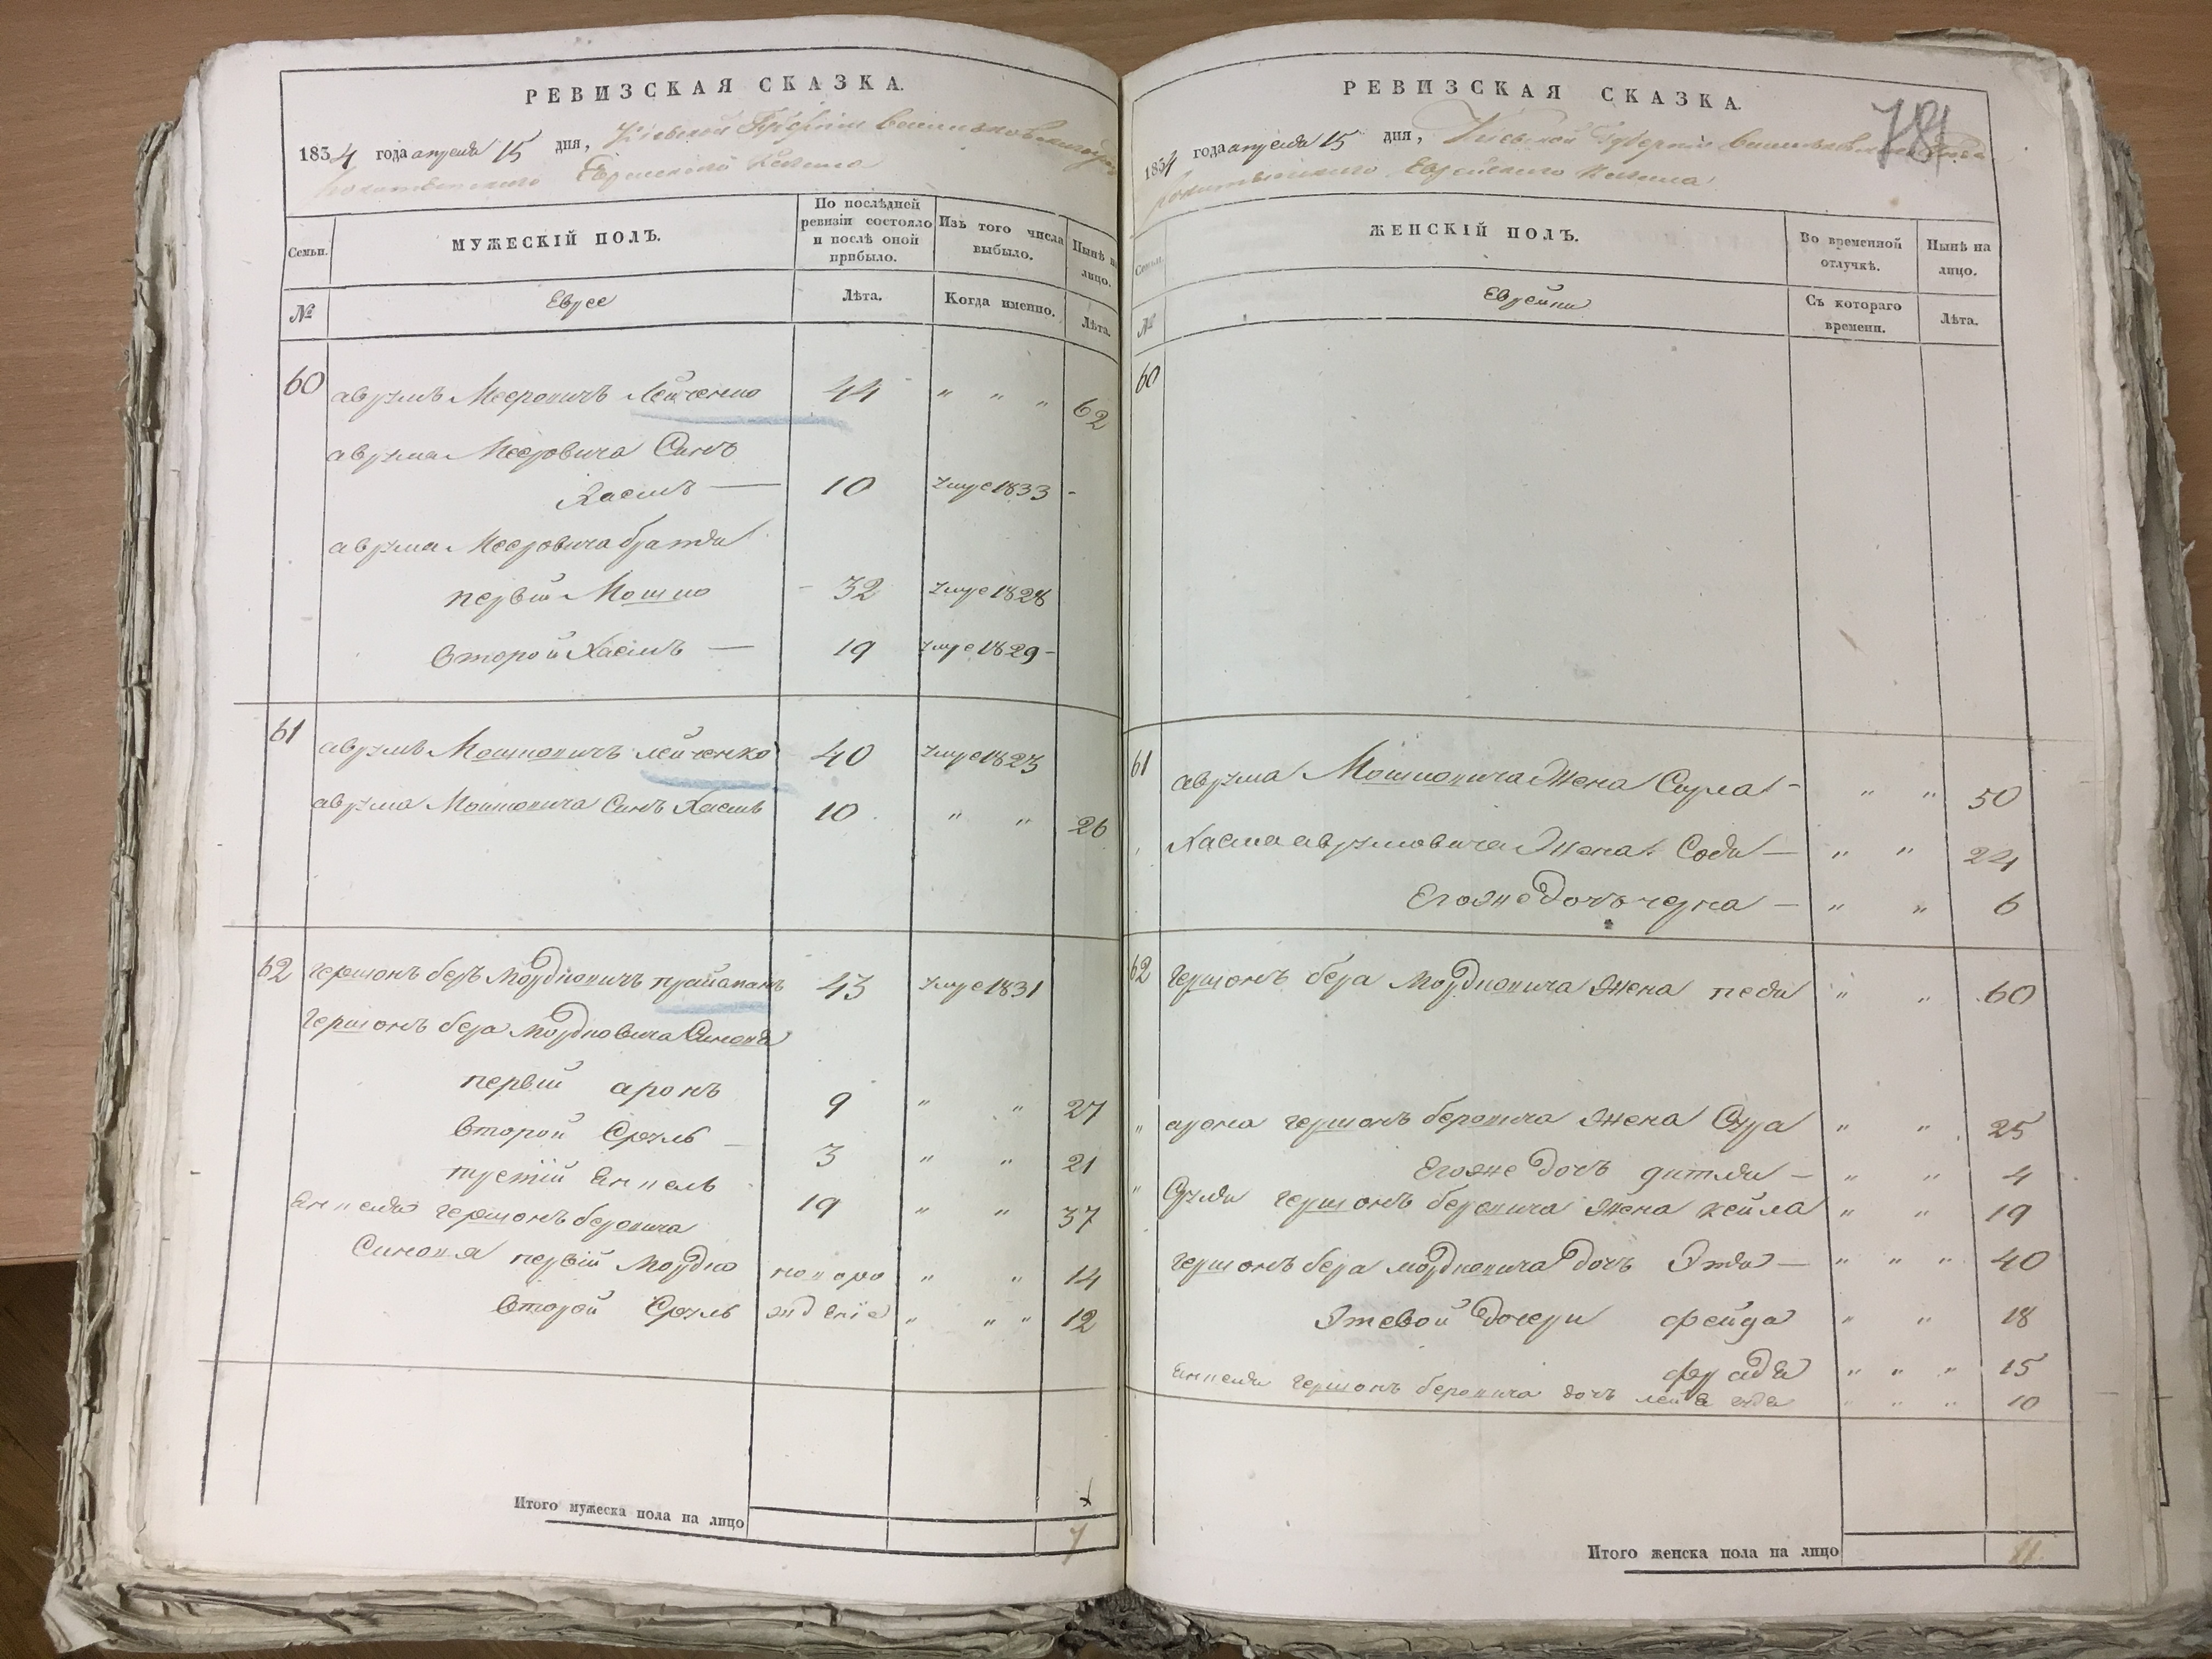 РЕВИЗСКАЯ СКАЗКА.
1834 года апреля 15 дня, Кіевской Губерніи
Еврейского
Семьи.
МУЖЕСКІЙ ПОЛЪ.
По послѣдней ревизіи состояло и послѣ оной прибыло.
Изъ того числа выбыло.
Нынѣ на лицо.
№
Еврее
Лѣта.
Когда именно.
Лѣта.
60 аврумъ Мееровичъ Лейченко 44 " " " 62
аврума Мееровича Синъ
Хаимъ — 10 Умре 1833 -
аврума Мееровича братья
первій Мошко - 32 Умре 1828
Второй Хаимъ — 19 Умре 1829 -
61 аврумъ Мошковичъ лейченко 40 Умре 1823
аврума Мошковича Синъ Хаимъ 10 " " 26
62 гершонъ беръ Мордковичъ 43 Умре 1831
гершонъ бера Мордковича Синовя
первій аронъ 9 " " 27
Второй Сруль — 3 " " 21
третій Янкель 19 " " 37
Янкеля гершонъ беровича
Синовя первій Мордко новоро " " 14
Второй Сруль жденіе " " " 12
Итого мужеска пола на лицо 7
РЕВИЗСКАЯ СКАЗКА.
781
1834 года апреля 15 дня, Кіевской Губерніи
Еврейского Кагала
Семьи.
ЖЕНСКІЙ ПОЛЪ.
Во временной отлучкѣ.
Нынѣ на лицо.
№
Еврейки
Съ котораго времени.
Лѣта.
60
61 аврума Мошковича Жена Сурла - " " 50
Хаима аврумовича Жена Сося — " " 24
Его же Дочь черна — " " 6
62 Гершонъ бера Мордковича Жена песя " " 60
" арона гершонъ беровича Жена Сура " " 25
Его же Дочь дитля — " " 4
" Сруля гершонъ беровича Жена кейла " " 19
гершонъ бера мордковича Дочь Этя — " " " 40
Этевой Дочери фейга " " 18
" " " 15
Янкеля гершонъ беровича дочь " " " 10
Итого женска пола на лицо 11